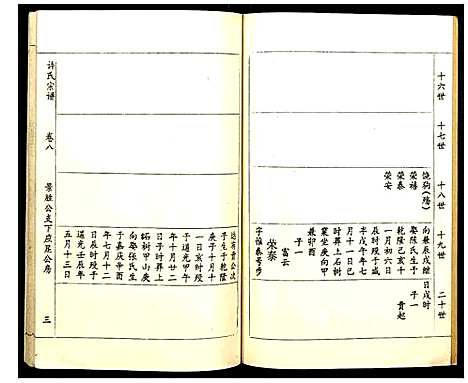 十六世
十七世
十八世
十九世
二十世
饶狗(殇)
荣禧
荣泰
荣安
向兼辰戌
日戌时
子一
贵起
娶陈氏生于
乾隆己亥十
一月初六日
辰时殁于咸
丰戊午年七
月十一日巳
时葬上石树
窠坐庚向甲
兼卯酉
子一
富云
荣泰
字惟泰号步
达有贵公次
子生于乾隆
庚子十月十
一日亥时殁
于道光甲午
年十月廿二
日子时葬上
柘树甲山庚
向娶张氏生
于嘉庆辛酉
年七月十二
日辰时殁于
道光壬辰年
五月十三日
许氏宗谱
卷八
景胜公支下应昆公房
三